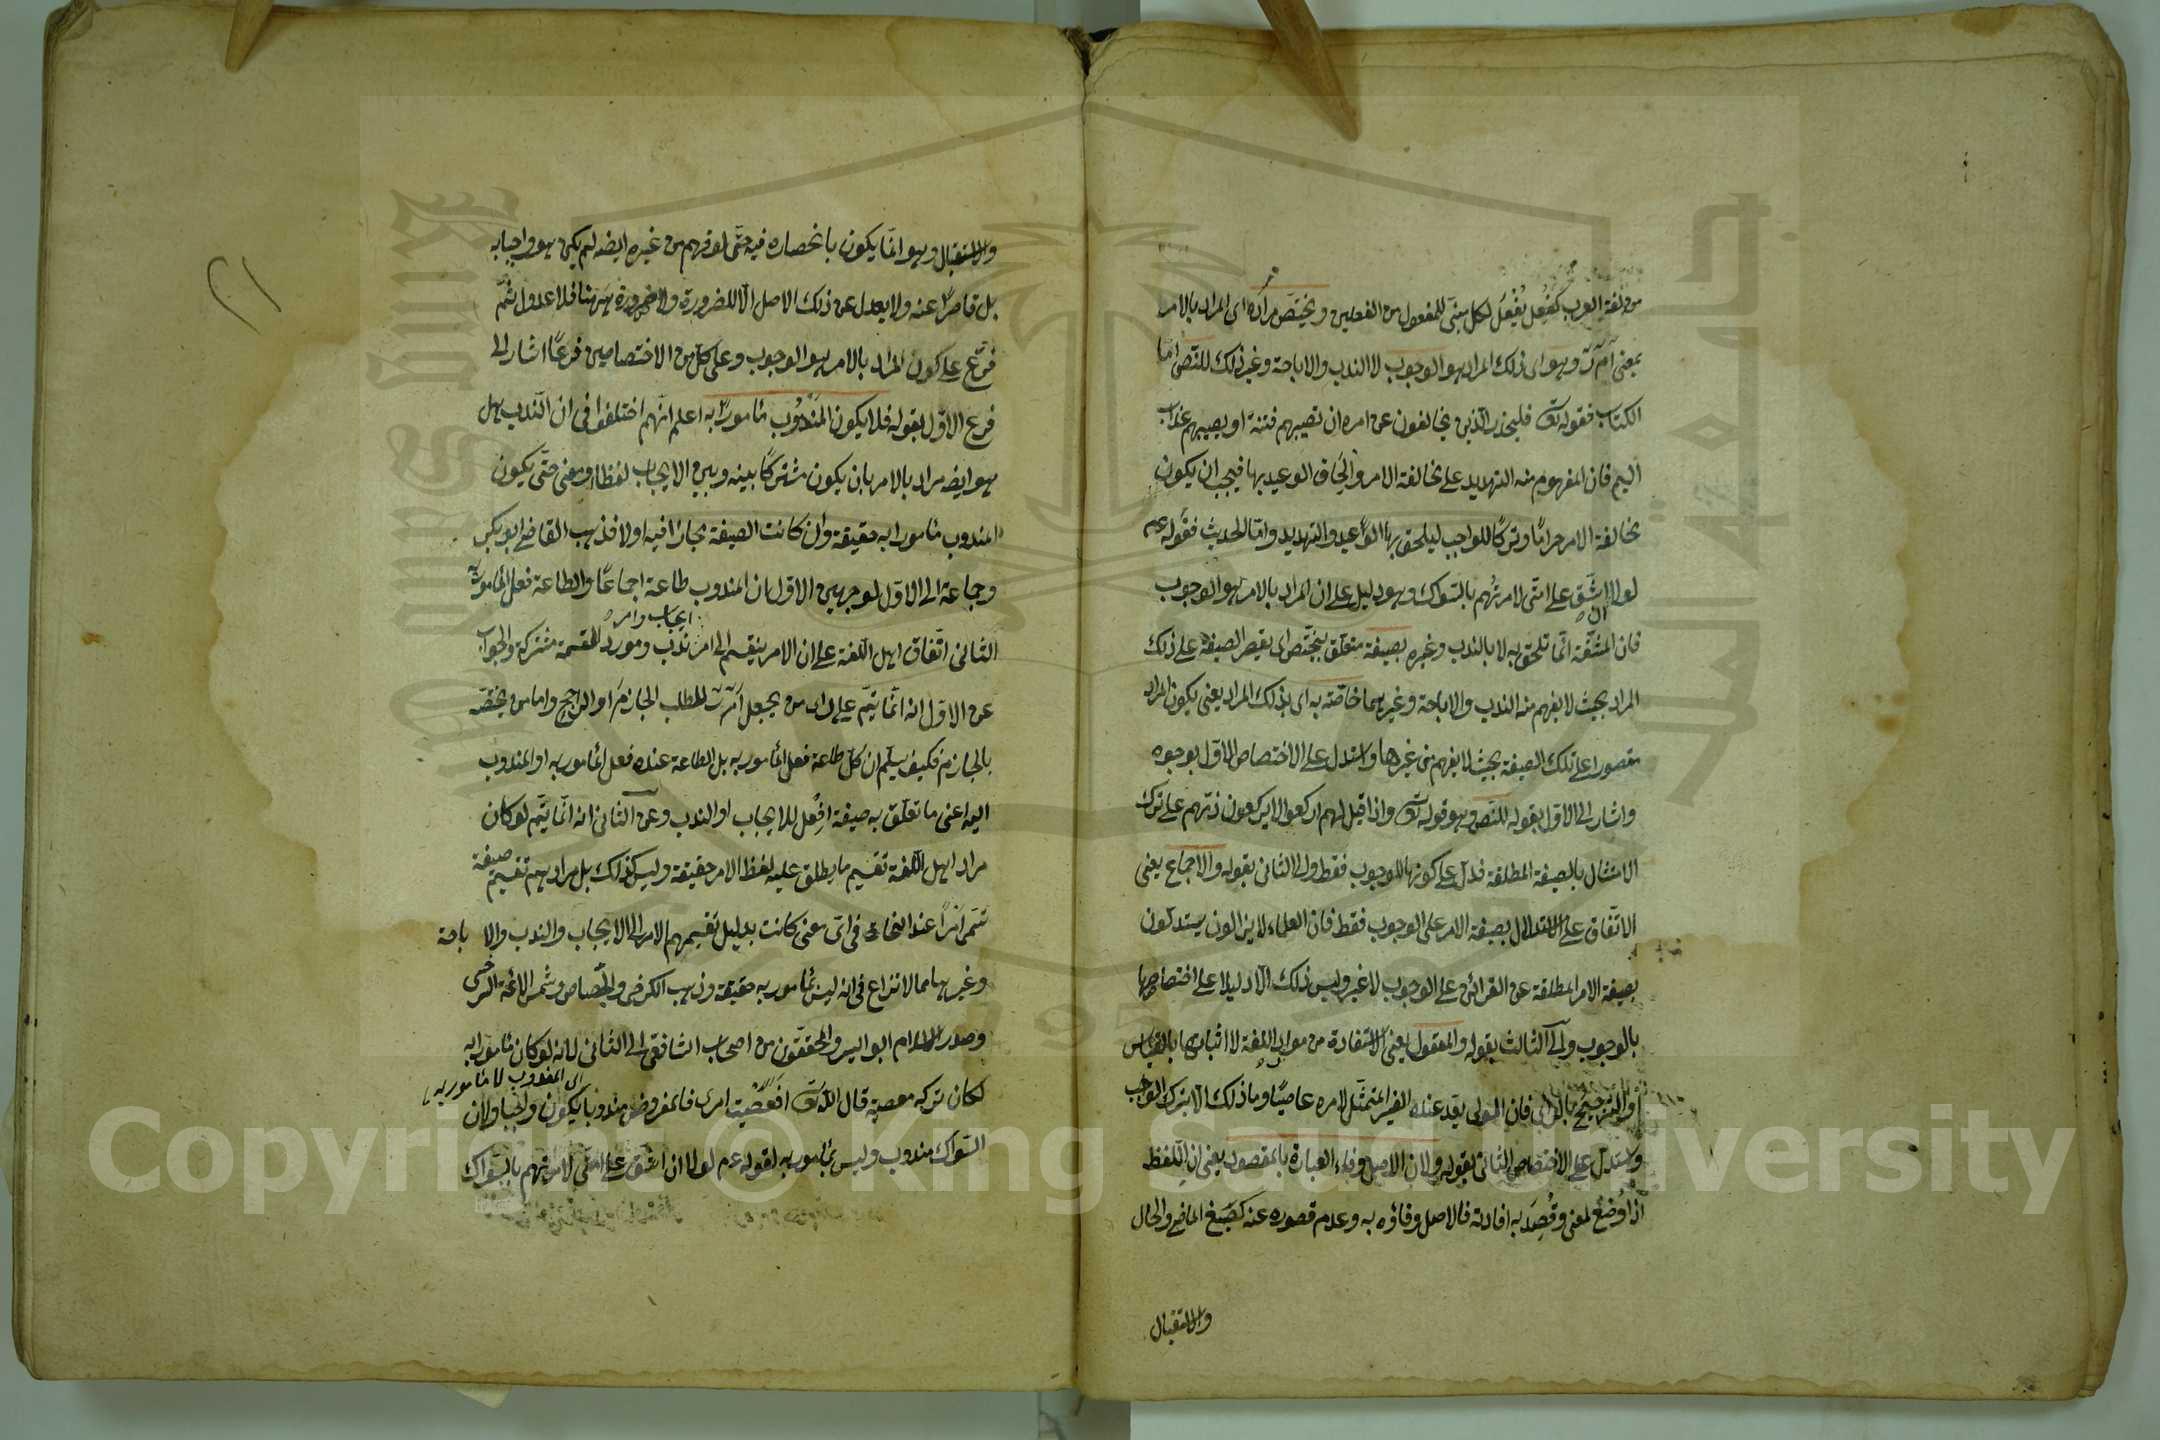 من لغة العرب كفُعِل يُفْعَل لكل مبنى للمفعول من الفعلين ويختصّ مراده اى المراد بالامر
بمعنى آم ر وهو اى ذلك المراد هو الوجوب لا الندب والاباحة وغير ذلك للنّص امّا
الكتاب فقوله تع فليحذر الذين يخالفون عن امره ان تصيبهم فتنة او يصيبهم عذاب
اليم فان المفهوم منه التهديد على مخالفة الامر والحاق الوعيد بها فيجب ان يكون
مخالفة الامر حرامًا وتركًا للواجب ليلحق بها الوعيد والتهديد وامّا الحديث فقوله عم
لولا ان اشقّ على امتى لامرتُهم بالسّواك وهو دليل على ان المراد بالامر هو الوجوب
فان المشقّة انّما تلحق به لا بالندب وغيره بصيغة متعلّق بيختّص اى يقصر الصيغة على ذلك
المراد بحيث لا يفهم منه الندب والاباحة وغيرهما خاصّة به اى بذلك المراد يعنى يكون المراد
مقصورا على تلك الصيغة بحيث لا يفهم من غيرها واستدل على الاختصاص الاول بوجوه
واشار الى الاول بقوله للنّص وهو قوله تع واذا قيل لهم اركعوا لا يركعون ذمّهم على ترك
الامتثال بالصيغة المطلقة فدلّ على كونها للوجوب فقط والى الثانى بقوله والاجماع يعنى
الاتّفاق على الاستدلال بصيغة الامر على الوجوب فقط فان العلماء لا يزالون يستدلّون
بصيغة الامر المطلقة عن القرائن على الوجوب لا غير وليس ذلك الّا دليلا على اختصاصها
بالوجوب والى الثالث بقوله والمعقول يعنى الاستفادة من موارد اللغة لا اثباتها بالقياس
او الترجيح بالرأى فان المولى يعد عبده الغير المتمثّل لامره عاصيًا وما ذلك الّا بترك الواجب
واستدلّ على الاختصاص الثانى بقوله ولان الاصل وفاء العبارة بالمقصود يعنى ان اللّفظ
اذا وُضع لمعنى وقُصِدَ به افادته فالاصل وفاؤه به وعدم قصوره عنه كصِيَغ الماضى والحال
والاستقبال
٢١
والاستقبال وهو انّما يكون بانحصاره فيه حتّى لو فهم من غيره ايضا لم يكن هو وافيا به
بل قاصرًا عنه ولا يعدل عن ذلك الاصل الّا للضرورة ولا ضرورة ههنا فلا عدول ثمّ
فرّع على كون المراد بالامر هو الوجوب وعلى كلّ من الاختصاصين فرعًا اشار الى
فرع الاوّل بقوله فلا يكون المندُوب مأمورًا به اعلم انّهم اختلفوا فى ان النّدب هل
هو ايضا مراد بالامر بان يكون مشتركًا بينه وبين الايجاب لفظا او معنى حتّى يكون
المندوب مأمورا به حقيقة وان كانت الصيغة مجازا فيه او لا فذهب القاضى ابو بكر
وجماعة الى الاوّل لوجهين الاول ان المندوب طاعة اجماعًا والطاعة فعل المأمور به
الثانى اتّفاق اهل اللّغة على ان الامر ينقسم الى امر ايجاب وامر ندب ومورد القسمة مشتركة والجواب
عن الاوّل انه انّما يتمّ على رأى من يجعل آم ر للطلب الجازم او الراجح واما من يخصّه
بالجازم فكيف يسلّم ان كلّ طاعة فعل المأمور به بل الطاعة عنده فعل المأمور به او المندوب
اليه اعنى ما تعلّق به صيغة افعل للايجاب او الندب وعن الثانى انه انّما يتّم لو كان
مراد اهل اللغة تقسيم ما يطلق عليه لفظ الامر حقيقة وليس كذلك بل مرادهم تقسيم صيغة
تسمّى امرًا عند النحاة فى اىّ معنى كانت بدليل تقسيمهم الامر الى الايجاب والندب والاباحة
وغيرها مما لا نزاع فى انه ليس بمأمور به حقيقة وذهب الكرخى والجصّاص وشمس الائمة السرخسى
وصدر الاسلام ابو اليسر والمحققون من اصحاب الشافعى الى الثانى لانه لو كان مأمورا به
لكان تركه معصية قال الله تع افعصيت امرى فالمفروض مندوبا يكون واجبا ولان
اى المندوب لا مأمور به
السّواك مندوب وليس بمأمور به لقوله عم لولا ان اشقّ على امتى لامرتهم بالسّواك